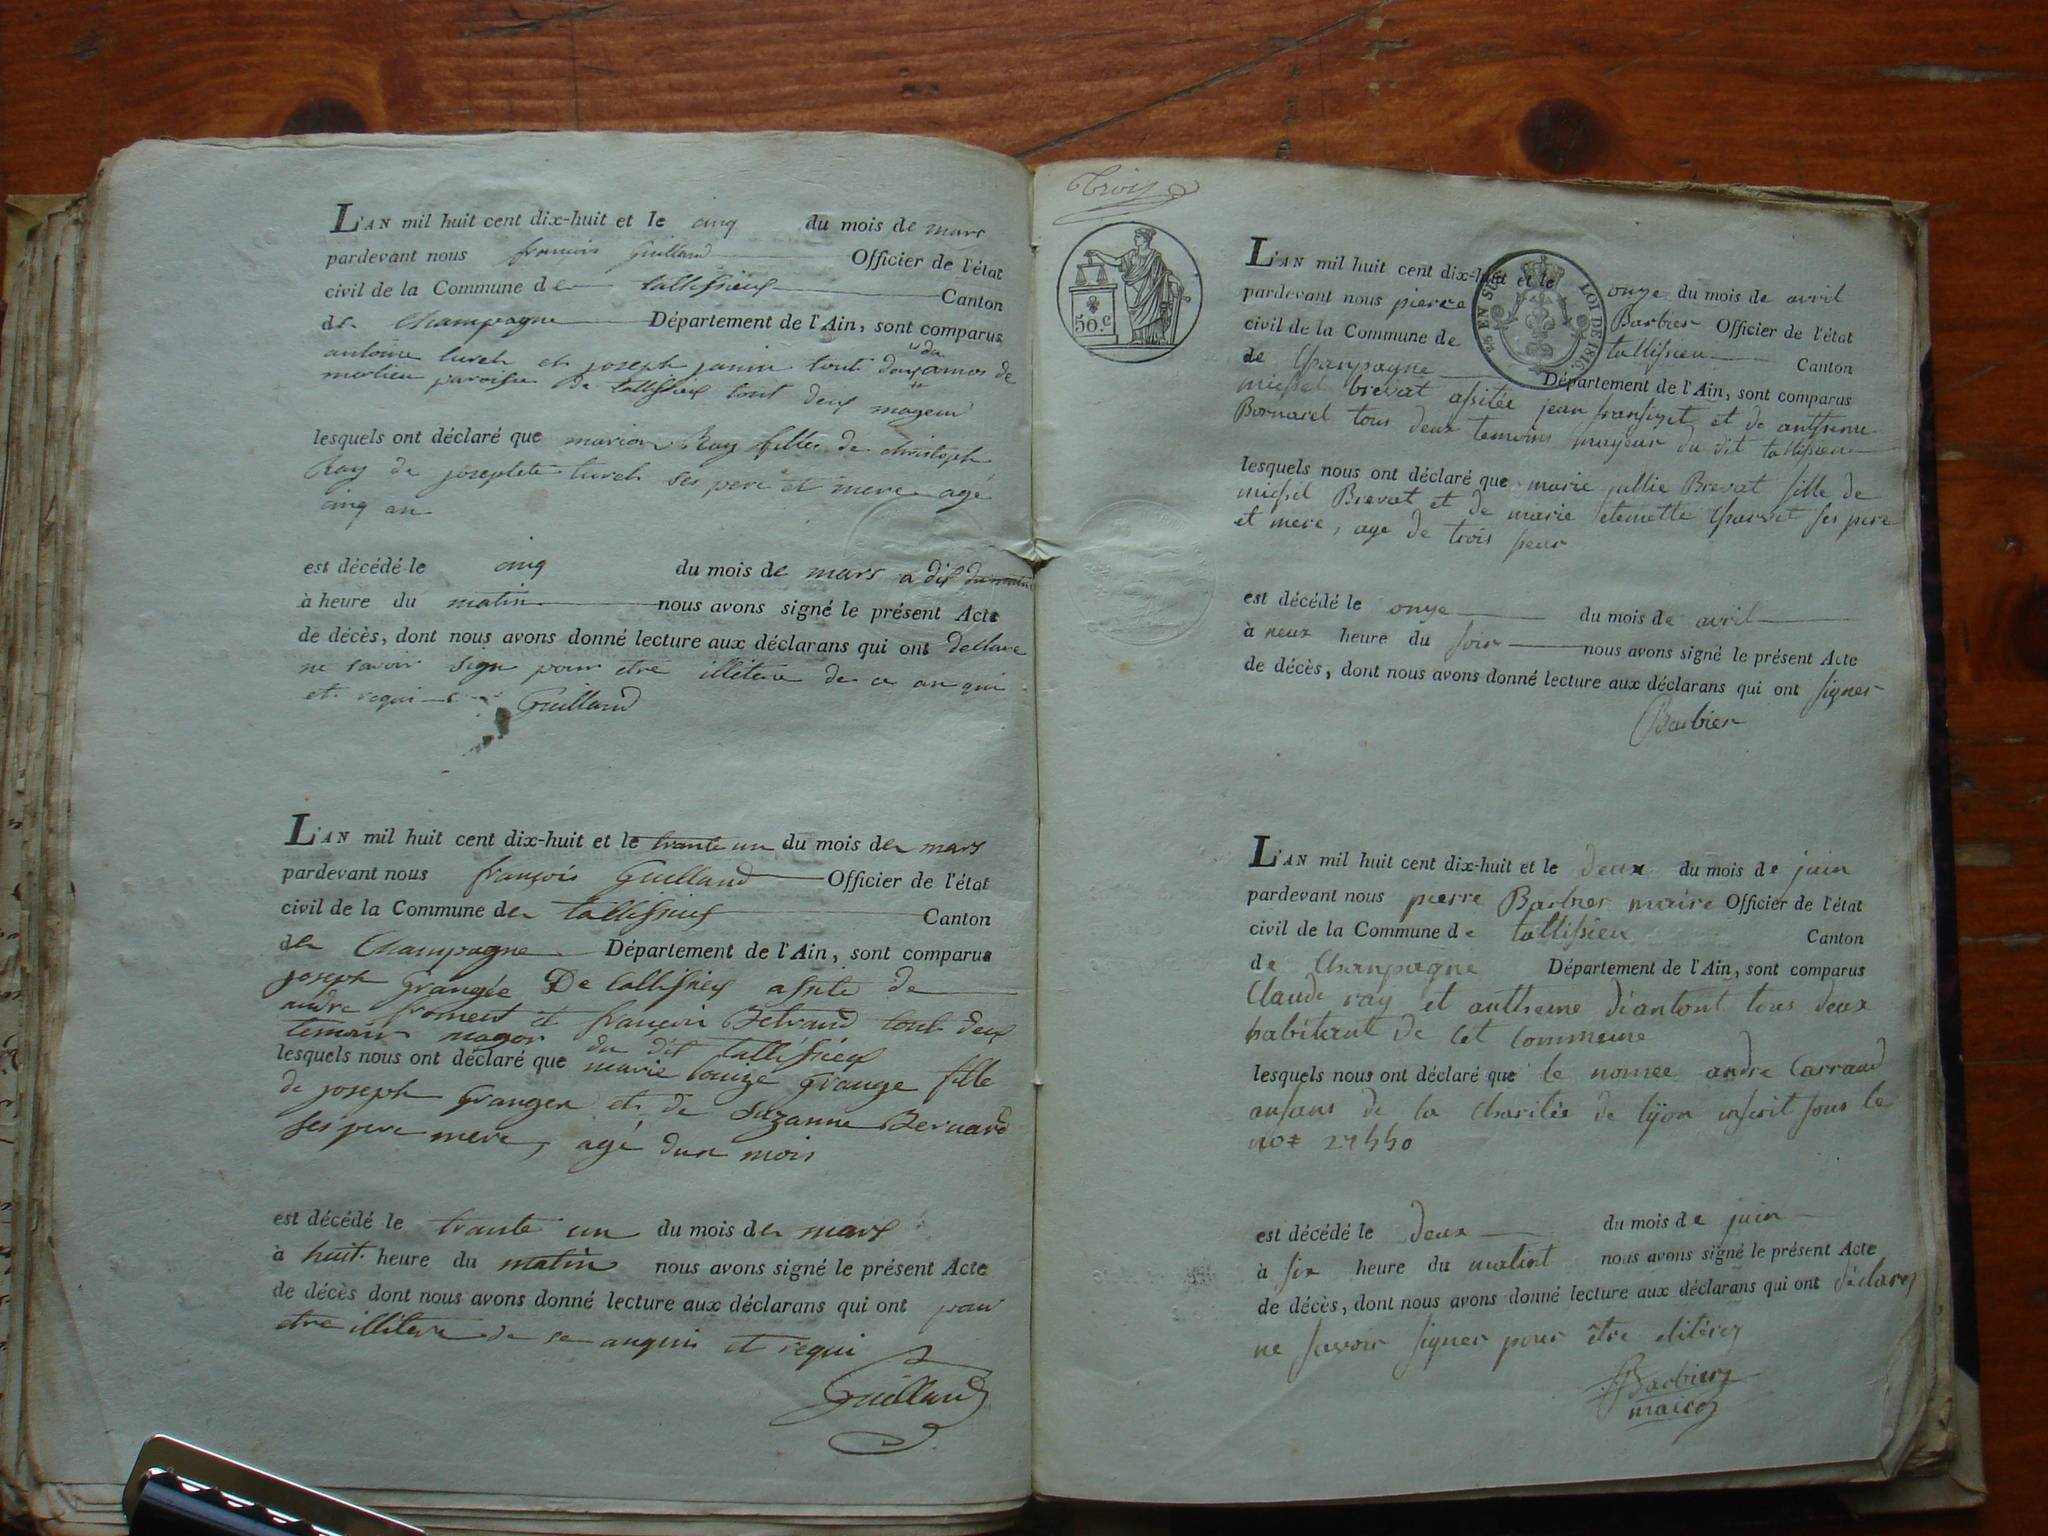 L'AN mil huit cent dix-huit et le cinq du mois de mars
pardevant nous francois Guilland Officier de l'état
civil de la Commune de tallissieux Canton
de Champagne Département de l'Ain, sont comparus
antoine turch et joseph janin tout deux
de tallissieux tout deux mageur
lesquels ont déclaré que marion Ray fille de christoph
Ray de josephte turch ses pere et mere agé
cinq an
est décédé le cinq du mois de mars a dix du matin
à heure du matin nous avons signé le présent Acte
de décès, dont nous avons donné lecture aux déclarans qui ont dellare
ne savoir sign pour etre illitere de ce an qui
et requi Guilland
L'AN mil huit cent dix-huit et le trante un du mois de mars
pardevant nous françois Guilland Officier de l'état
civil de la Commune de tallissieux Canton
de Champagne Département de l'Ain, sont comparus
joseph Grangée De tallissieux assité de
andre froment et françois Betrand tout deux
temoin magor du dit tallissieux
lesquels nous ont déclaré que marie louize Grange fille
de joseph Granger et de Suzanne Bernard
ses pere mere, agé dun mois
est décédé le trante un du mois de mars
à huit heure du matin nous avons signé le présent Acte
de décès dont nous avons donné lecture aux déclarans qui ont pour
etre illitere de se anquis et requi
Guilland
trois
50 c
25 EN SUS LOI DE 1816
L'AN mil huit cent dix-huit et le onze du mois de avril
pardevant nous pierre Barbier Officier de l'état
civil de la Commune de tallissieu Canton
de Champagne Département de l'Ain, sont comparus
michel brevat assitée jean et de antheme
Bornarel tous deux temoins mayeur du dit tallissieu
lesquels nous ont déclaré que marie jullie Brevat fille de
michel Brevat et de marie ses pere
et mere, age de trois
est décédé le onze du mois de avril
à neux heure du soir nous avons signé le présent Acte
de décès, dont nous avons donné lecture aux déclarans qui ont signer
Barbier
L'AN mil huit cent dix-huit et le deux du mois de juin
pardevant nous pierre Barbier maire Officier de l'état
civil de la Commune de tallissieu Canton
de Champagne Département de l'Ain, sont comparus
Claude ray et antheme diantont tous deux
habitant de Cet Commeune
lesquels nous ont déclaré que le nomée andre Carraud
anfans de la Charitée de lÿon inscrit sous le
est décédé le deux du mois de juin
à six heure du matint nous avons signé le présent Acte
de décès, dont nous avons donné lecture aux déclarans qui ont déclarez
ne savoir signer pour être elitérez
Barbier
maire